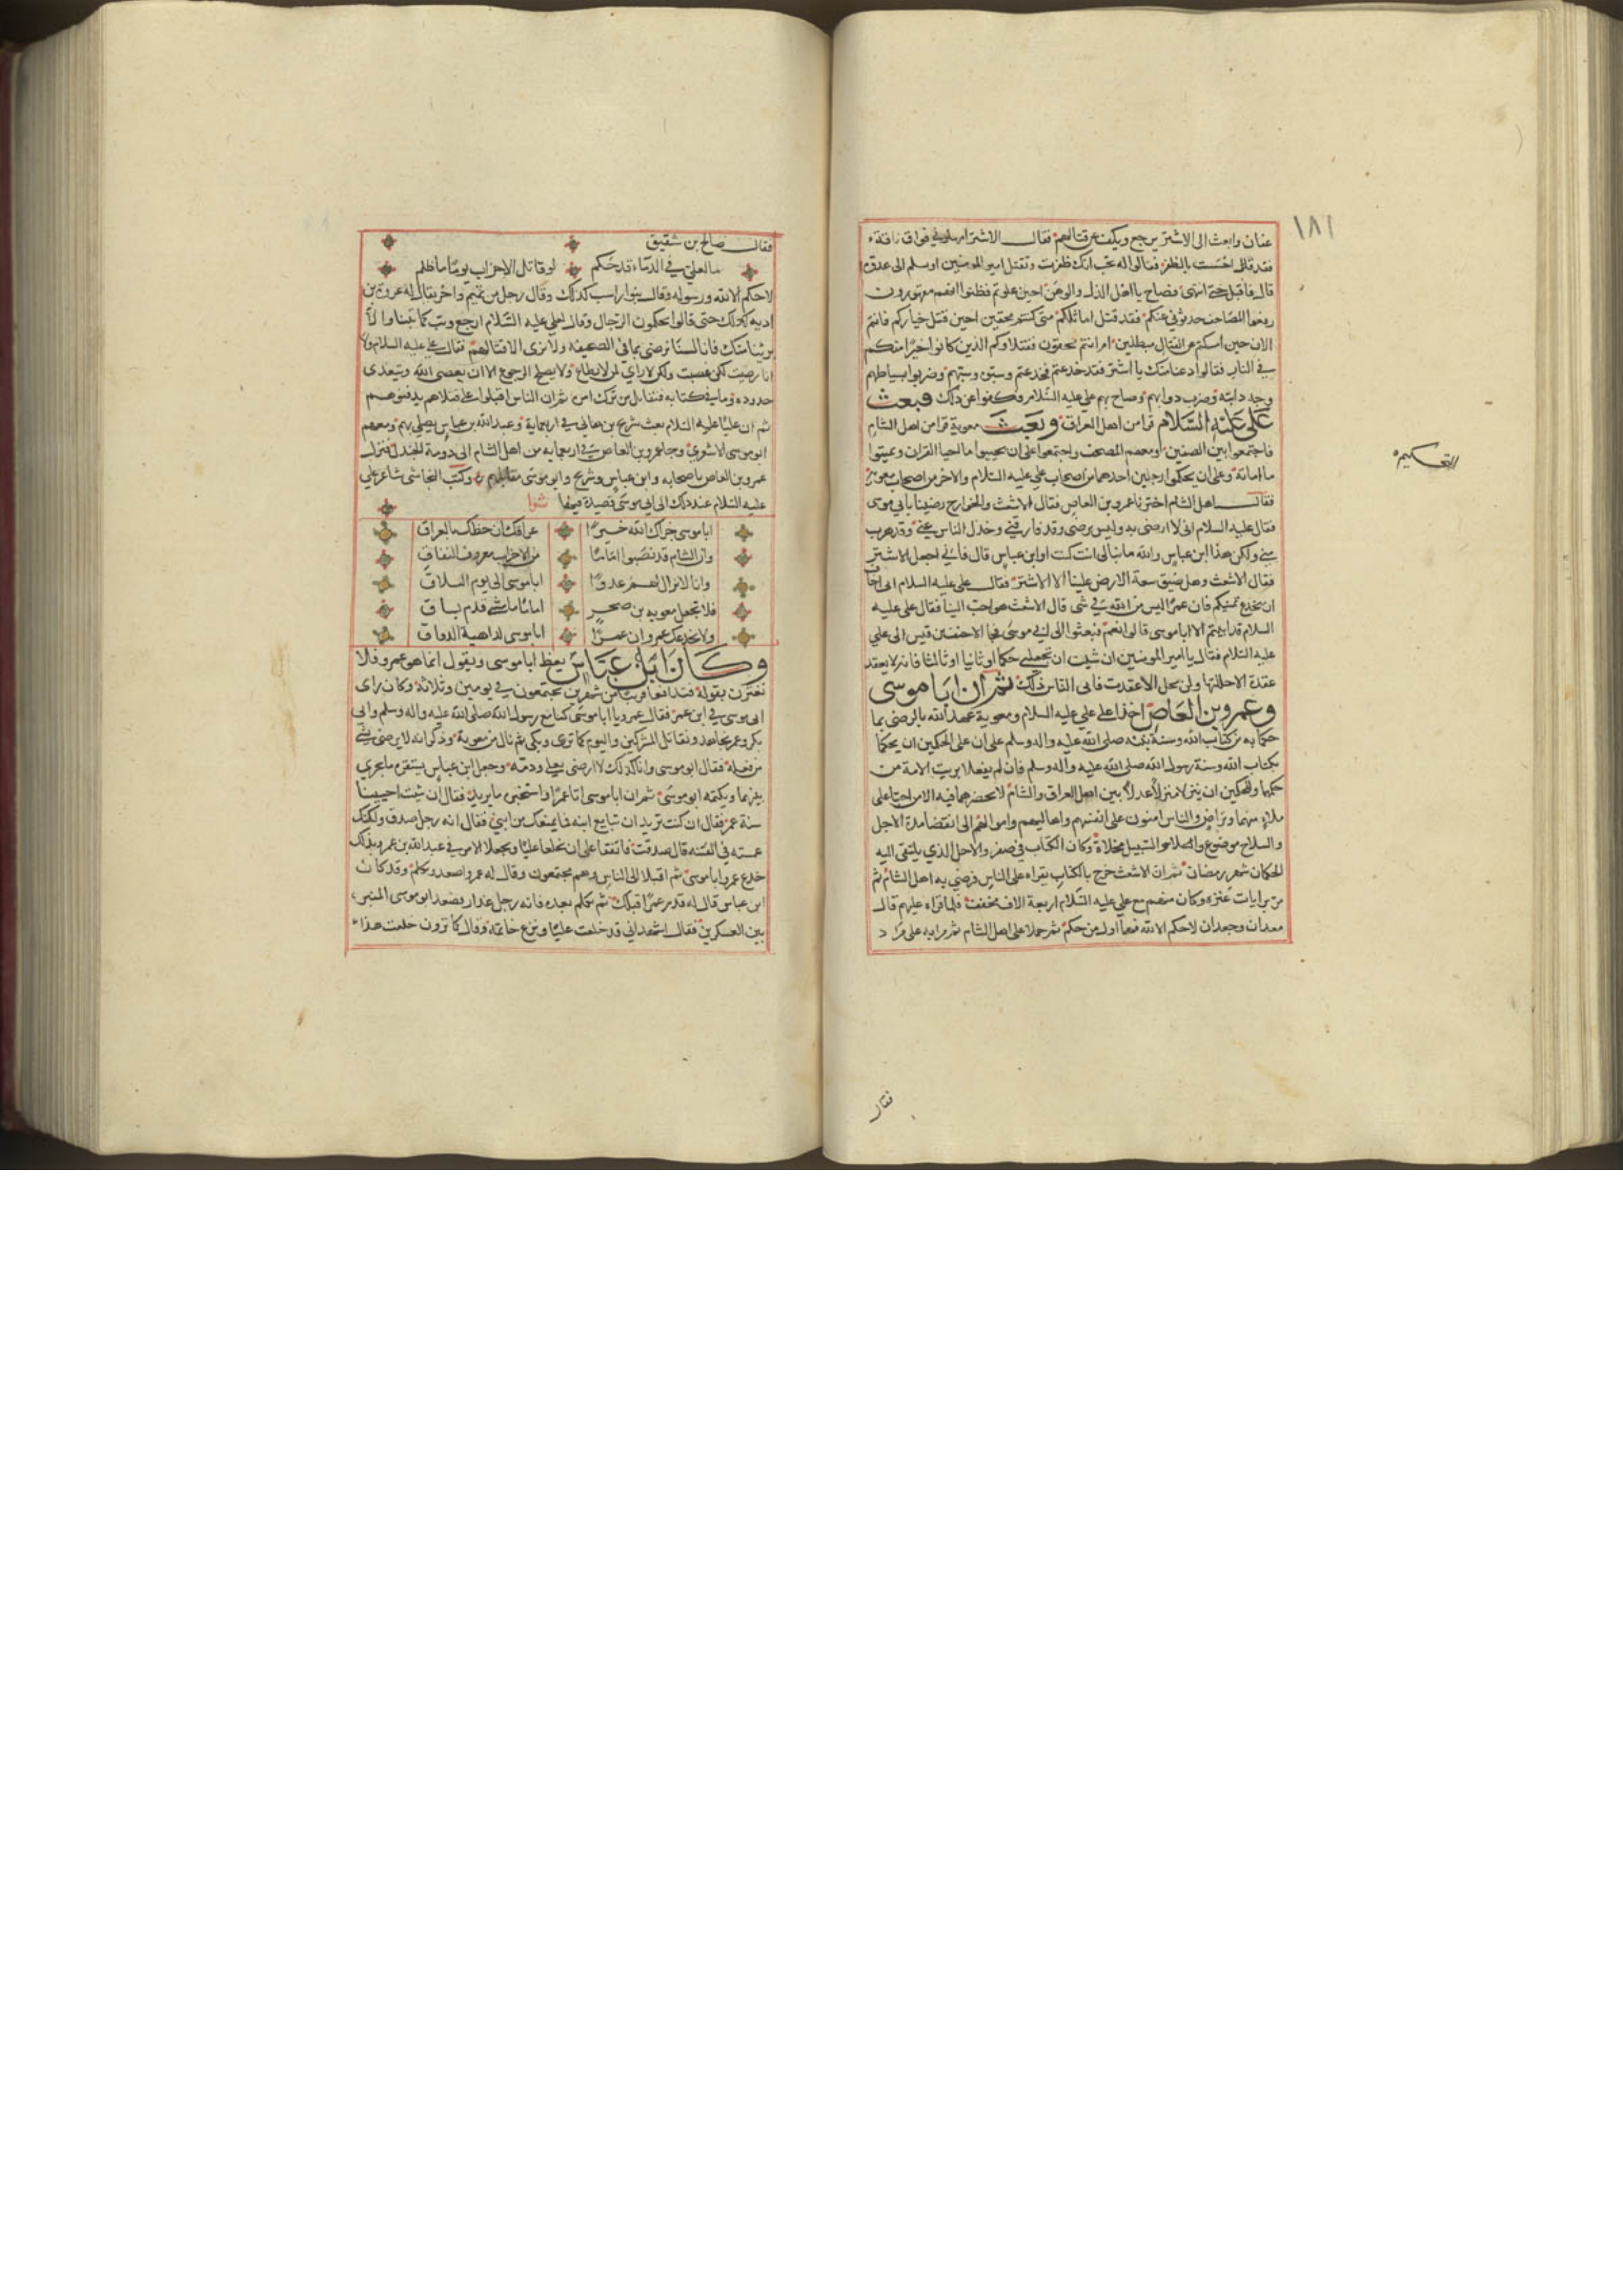 ١٨١
عفان وابعث الى الاشتر يرجع ويكف عن قتالهم فقال الاشتر امهلوني فواق ناقة
فقد قلى احسست بالظفر فقالوا له تحب انك ظفرت وتقتل امير المومنين او سلم الى عدوه
قال فاقبل حتى انتهى فصاح يا اهل الذل والوهن احين علوتم فظنوا انهم مقهورون
رفعوا المصاحف حدثوني عنكم فقد قتل اماثلكم متى كنتم محقين احين قتل خياركم فانتم
الان حين امسكتم عن القتال مبطلين ام انتم محقون فقتلاوكم الذين كانوا خيرا منكم
في النار فقالوا دعنا منك يا اشتر فقد خدعتم فخدعتم وسبق وسبتهم وضربوا بسياطهم
وجه دابته وضرب دوابهم وصاح بهم علي عليه السلام فكفوا عن ذلك فبعث
علي عليه السلام قرا من اهل العراق وبعث معوية قرا من اهل الشام
فاجتمعوا بين الصفين ومعهم المصحف واجتمعوا على ان يحييوا ما احيا القران ويميتوا
ما اماته وعلى ان يحكموا رجلين احدهما من اصحاب علي عليه السلام والاخر من اصحاب معوية
فقال اهل الشام اخترنا عمرو بن العاص فقال الاشعث والخوارج رضينا بابي موسى
فقال عليه السلام انى لا ارضى به وليس برضى وقد فارقني وخذل الناس عني وقد هرب
مني ولكن هذا ابن عباس والله ما نبالى انت كنت او ابن عباس قال فاني اجعل الاشتر
فقال الاشعث وهل ضيق سعة الارض علينا الا الاشتر فقال علي عليه السلام انى اخاف
ان يخدع يمنيكم فان عمرا ليس من الله في شى قال الاشعث هو احب الينا فقال علي عليه
السلام قد ابيتم الا ابا موسى قالوا نعم فبعثوا الى ابي موسى فجا الاحنف بن قيس الى علي
عليه السلام فقال يا امير المومنين ان شيت ان تجعلني حكما او ثانيا او ثالثا فانه لا يعقد
عقدة الا حللتها ولن يحل الا عقدت فابى الناس ذلك ثم ان ابا موسى
وعمرو بن العاص اخذا على علي عليه السلام ومعوية عهد الله بالرضى بما
حكما به من كتاب الله وسنة نبيه صلى الله عليه واله وسلم على ان على الحكمين ان يحكما
بكتاب الله وسنة رسول الله صلى الله عليه واله وسلم فان لم يفعلا بريت الامة من
حكمها وللحكمين ان ينزلا منزلا عدلا بين اهل العراق والشام لا يحضرهما فيه الا من احبا على
ملاء منهما وتراض والناس امنون على انفسهم واهاليهم واموالهم الى انقضا مدة الاجل
والسلاح موضوع والسبيل مخلاة وكان الكتاب في صفر والاجل الذي يلتقى اليه
الحكمان شهر رمضان ثم ان الاشعث خرج بالكتاب يقراه على الناس فرضي به اهل الشام ثم
مر برايات عنزة وكان منهم مع علي عليه السلام اربعة الاف مجفف فلما قراه عليهم قال
معدان وجعدان لا حكم الا لله فهما اول من حكم ثم حملا على اهل الشام ثم مر به على مراد
التحكيم
فقال
فقال صالح بن شقيق
ما لعلي في الدماء قد حكم لو قاتل الاحزاب يوما ما ظلم
لا حكم الا لله ورسوله وقال بنو راسب كذلك وقال رجل من تميم واخر يقال له عروة بن
اديه كذلك حتى قالوا يحكمون الرجال وقال لعلي عليه السلام ارجع وتب كما تبنا والا
برئنا منك فانا لسنا نرضى بما في الصحيفه ولا نرى الا قتالهم فقال علي عليه السلام ولا
انا رضيت لكن غصبت ولكن لا راي لمن لا يطاع ولا يصلح الرجوع الا ان يعصى الله ويتعدى
حدوده وما في كتابه فنقاتل من ترك امره ثم ان الناس اقبلوا على قتلاهم يدفنوهم
ثم ان عليا عليه السلام بعث شريح بن هاني في اربعماية وعبد الله بن عباس يصلي بهم ومعهم
ابو موسى الاشعري وجا عمرو بن العاص في اربعمايه من اهل الشام الى دومة الجندل فنزل
عمرو بن العاص باصحابه وابن عباس وشريح وابو موسى مقابلهم وكتب النجاشى شاعر علي
عليه السلام عند ذلك الى ابي موسى قصيدة فيها شعرا
ابا موسى جزاك الله خيرا عراقك ان حظك بالعراق
وان الشام قد نصبوا اماما من الاحزاب معروف النفاق
وانا لا نزال لهم عدوا ابا موسى الى يوم التلاق
فلا تجعل معويه بن صخر اماما ما مشى قدم بساق
ولا يخدعك عمرو ان عمرا ابا موسى لداهية الدواق
وكان ابن عباس يعظ ابا موسى ويقول انما هو عمرو فلا
تغترن بقوله فتدافعا قريبا من شهرين يجتمعون في يومين وثلاثة وكان راى
ابى موسى في ابن عمر فقال عمرو يا ابا موسى كنا مع رسول الله صلى الله عليه واله وسلم وابى
بكر وعمر نجاهد ونقاتل المشركين واليوم كما ترى وبكى ثم نال من معوية وذكر انه لا يرضى بشي
من فعله فقال ابو موسى وانا كذلك لا ارضى بعلي وذمه وجعل ابن عباس يستقرى ما يجري
بينهما ويكتمه ابو موسى ثم ان ابا موسى اتا عمرا واستخبره ما يريد فقال ان شيت احيينا
سنة عمر فقال ان كنت تريد ان تبايع ابنه فما يمنعك من ابني فقال انه رجل صدق ولكنك
غمسته في الفتنه قال صدقت فاتفقا على ان يخلعا عليا ويجعلا الامر في عبد الله بن عمر وبذلك
خدع عمرو ابا موسى ثم اقبلا الى الناس وهم مجتمعون وقال له عمرو اصعد وتكلم وقد كان
ابن عباس قال له قدم عمرا قبلك ثم تكلم بعده فانه رجل غدار فصعد ابو موسى المنبر
بين العسكرين فقال اشهد اني قد خلعت عليا ونزع خاتمه وقال كما ترون خلعت هذا